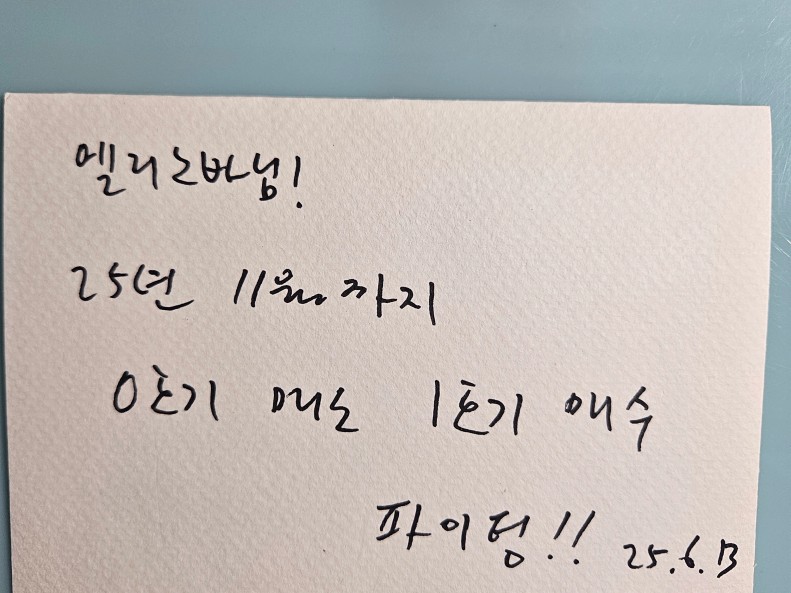 엘리노바님!
25년 11월까지
0호기 매도 1호기 매수
파이팅!! 25.6.13